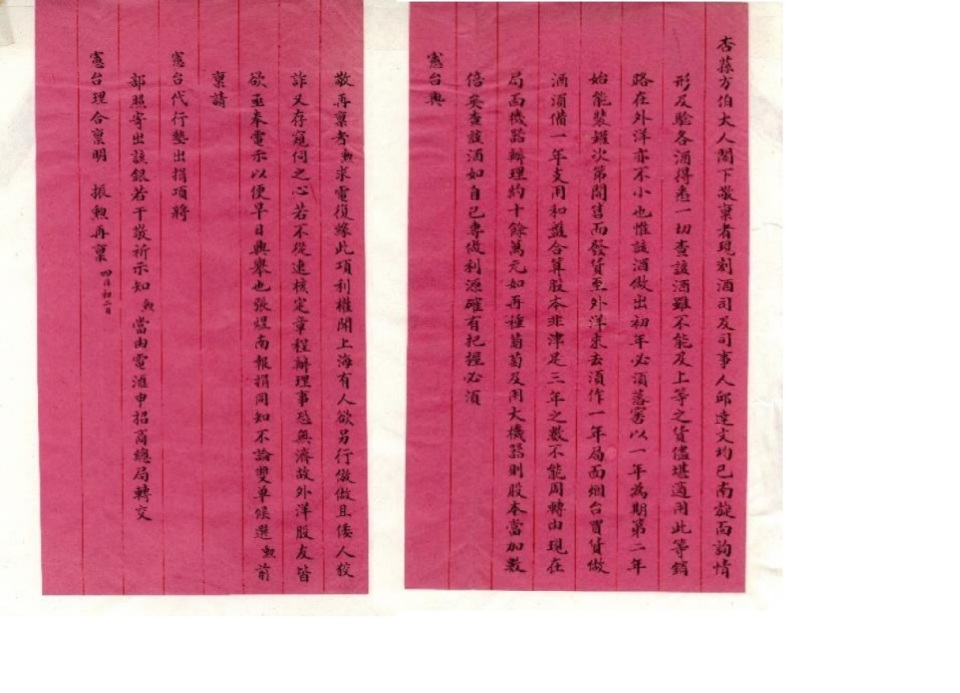 杏蓀方伯大人閣下敬稟者現刻酒司及司事人邱達文均已南旋面詢情
形及驗各酒得悉一切查該酒雖不能及上等之貨儘堪適用此等銷
路在外洋亦不小也惟該酒做出初年必須落窖以一年為期第二年
始能裝罐次第開售而發貨至外洋來去須作一年局面烟台買貨做
酒須備一年支用和盤合算股本非津足三年之數不能周轉由現在
局面機器辦理約十餘萬元如再種萄萄及用大機器則股本當加數
倍矣查該酒如自己專做利源確有把握必須
憲台與
敬再稟者勲求電復緣此項利權聞上海有人欲另行倣做且倭人狡
詐又存窺伺之心若不從速核定章程辦理事恐無濟故外洋股友皆
欲亟來電示以便早日興舉也張煜南報捐同知不論雙單候選勲前
稟請
憲台代行墊出捐項將
部照寄出該銀若干敬祈示知勲當由電滙申招商總局轉交
憲台理合稟明 振勲再稟 四月初二日